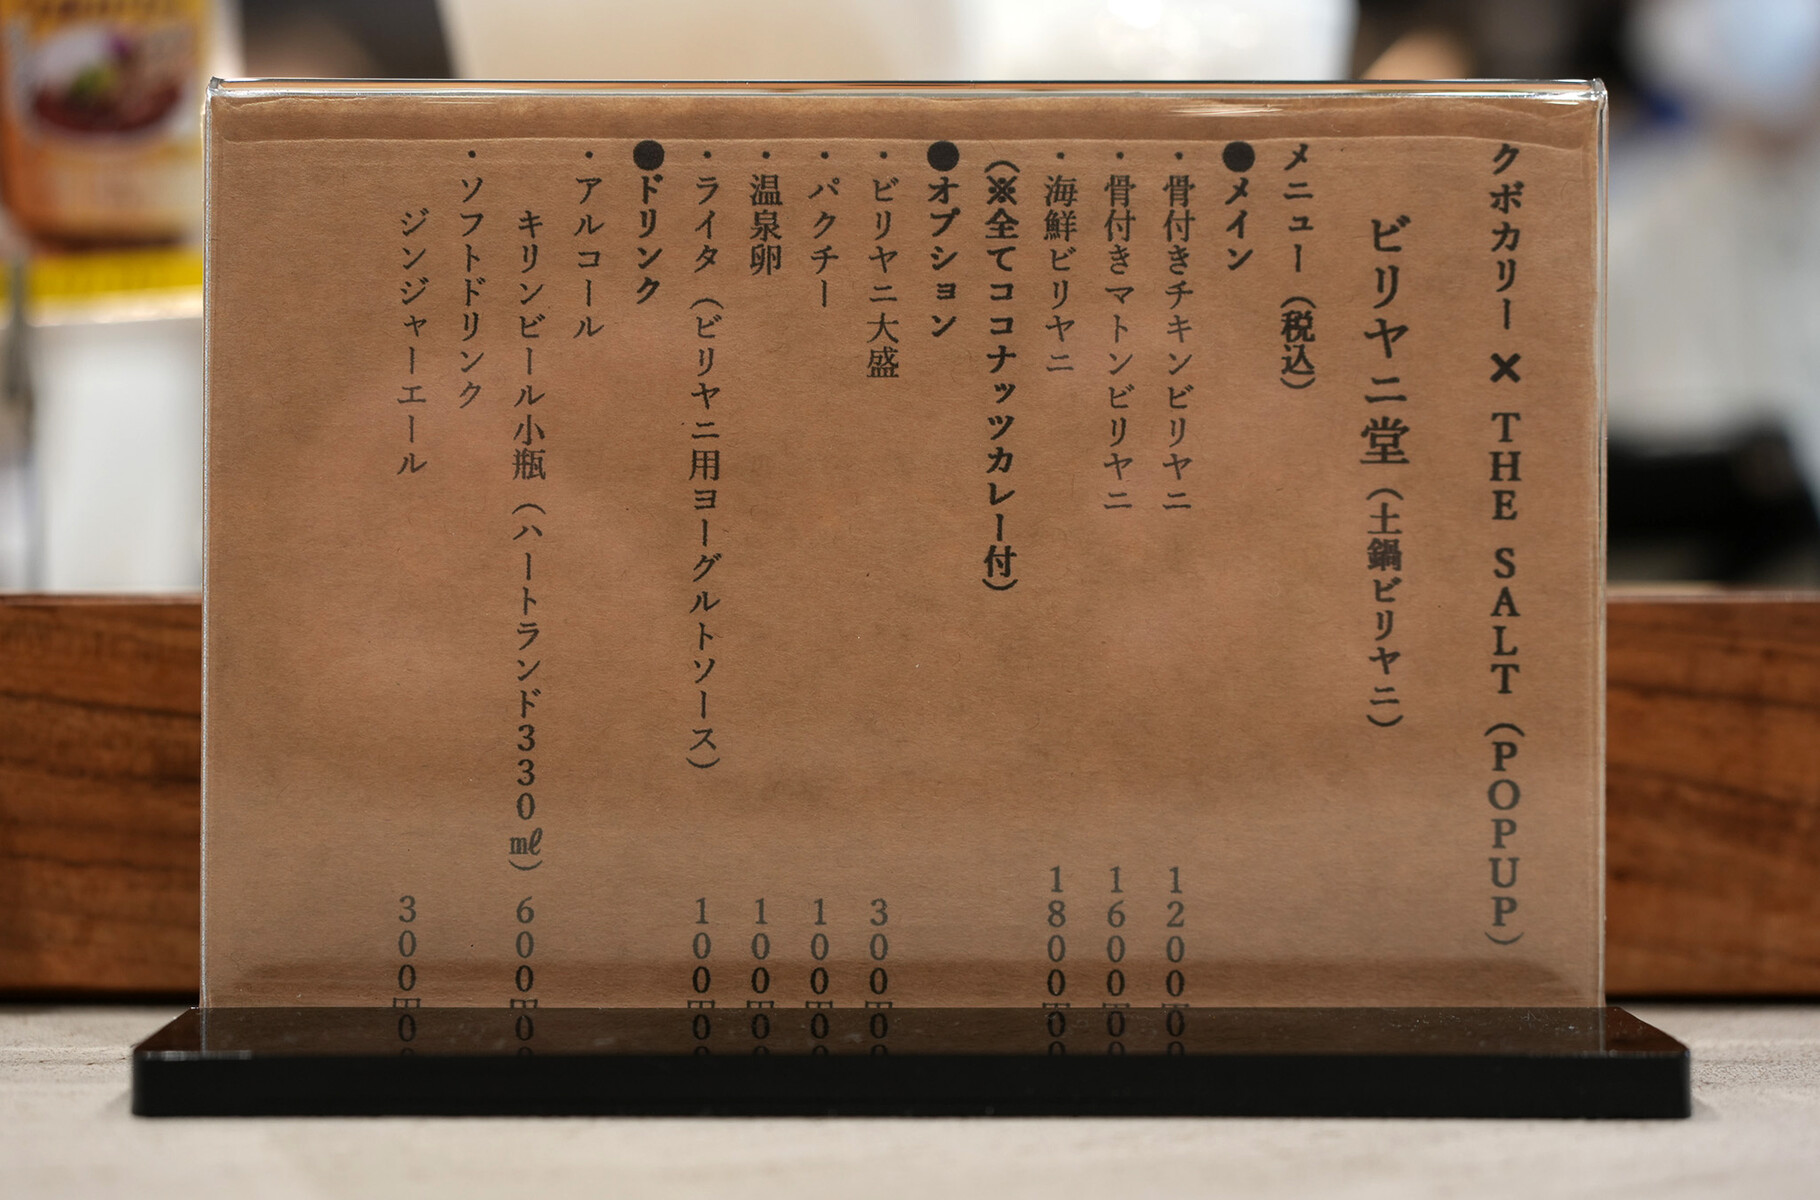 クボカリー✖THE SALT(POPUP)
ビリヤニ堂(土鍋ビリヤニ)
メニュー(税込)
●メイン
・骨付きチキンビリヤニ 1200円
・骨付きマトンビリヤニ 1600円
・海鮮ビリヤニ 1800円
(※全てココナッツカレー付)
●オプション
・ビリヤニ大盛 300円
・パクチー 100円
・温泉卵 100円
・ライタ(ビリヤニ用ヨーグルトソース) 100円
●ドリンク
・アルコール
キリンビール小瓶(ハートランド330㎖) 600円
・ソフトドリンク
ジンジャーエール 300円